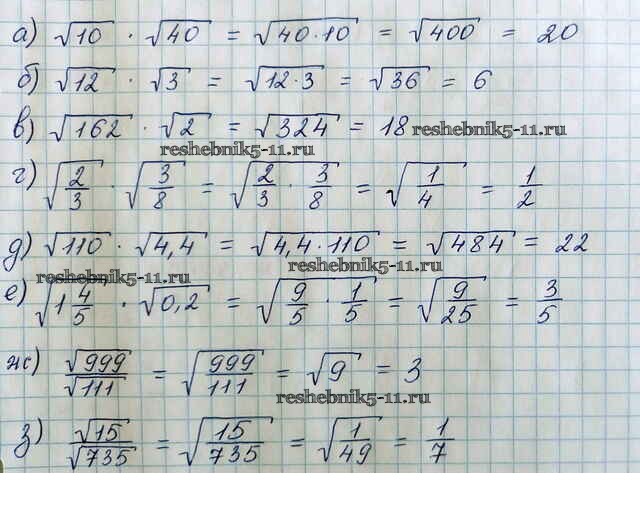 а) √10 · √40 = √40·10 = √400 = 20
б) √12 · √3 = √12·3 = √36 = 6
в) √162 · √2 = √324 = 18 reshebnik5-11.ru
reshebnik5-11.ru
г) √2/3 · √3/8 = √2/3 · 3/8 = √1/4 = 1/2
д) √110 · √4,4 = √4,4·110 = √484 = 22
reshebnik5-11.ru reshebnik5-11.ru
е) √1 4/5 · √0,2 = √9/5 · 1/5 = √9/25 = 3/5
ж) √999/√111 = √999/111 = √9 = 3
reshebnik5-11.ru
з) √15/√735 = √15/735 = √1/49 = 1/7